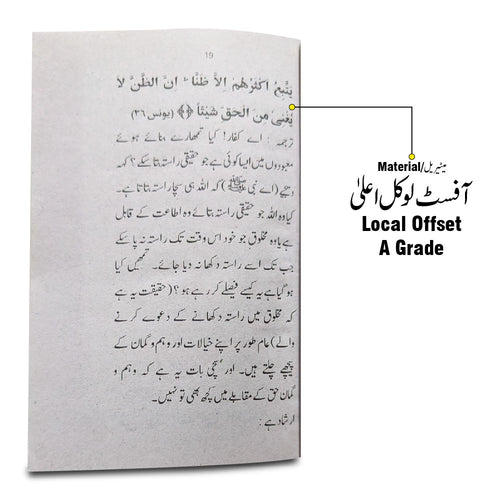 19
یَتَّبِعُ اَکْثَرُهُم اِلاَّ ظَنًّا ؕ اِنَّ الظَّنَّ لاَ
یُغْنِیْ مِنَ الْحَقِّ شَیْئًا ﴿﴾ (یونس ۳۶)
ترجمہ : اے کفار! کیا تمھارے بنائے ہوئے
معبودوں میں ایسا کوئی ہے جو حقیقی راستہ بتا سکے؟ کہہ
دیجئے (اے نبی ﷺ) کہ اللہ ہی سچا راستہ بتاتا ہے۔
کیا وہ اللہ جو حقیقی راستہ بتائے وہ اطاعت کے قابل
ہے یا وہ مخلوق جو خود اس وقت تک راستہ نہ پا سکے
جب تک اسے راستہ دکھا نہ دیا جائے۔ تمھیں کیا
ہو گیا ہے یہ کیسے فیصلے کر رہے ہو ؟ (حقیقت یہ ہے
کہ مخلوق میں راستہ دکھانے کے دعوے کرنے
والے) عام طور پر اپنے خیالات اور وہم و گمان کے
پیچھے چلتے ہیں۔ اور سچی بات یہ ہے کہ وہم و
گمان حق کے مقابلے میں کچھ بھی تو نہیں۔
ارشاد ہے :
Material/میٹیریل
آفسٹ لوکل اعلیٰ
Local Offset
A Grade